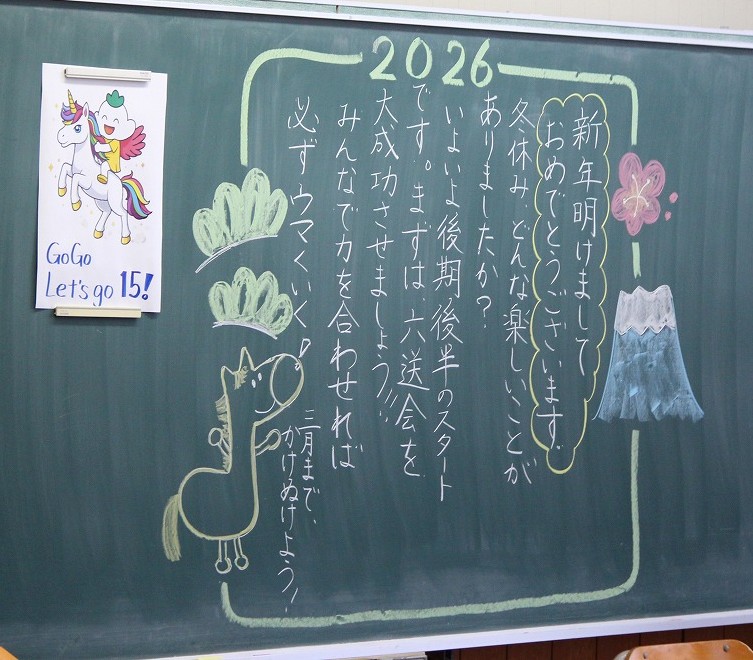 2026
新年明けまして
おめでとうございます。
冬休み、どんな楽しいことが
ありましたか？
いよいよ後期、後半のスタート
です。まずは、六送会を
大成功させましょう!!
みんなで力を合わせれば
必ずウマくいく!
三月まで、
かけぬけよう!
GoGo
Let's go 15!